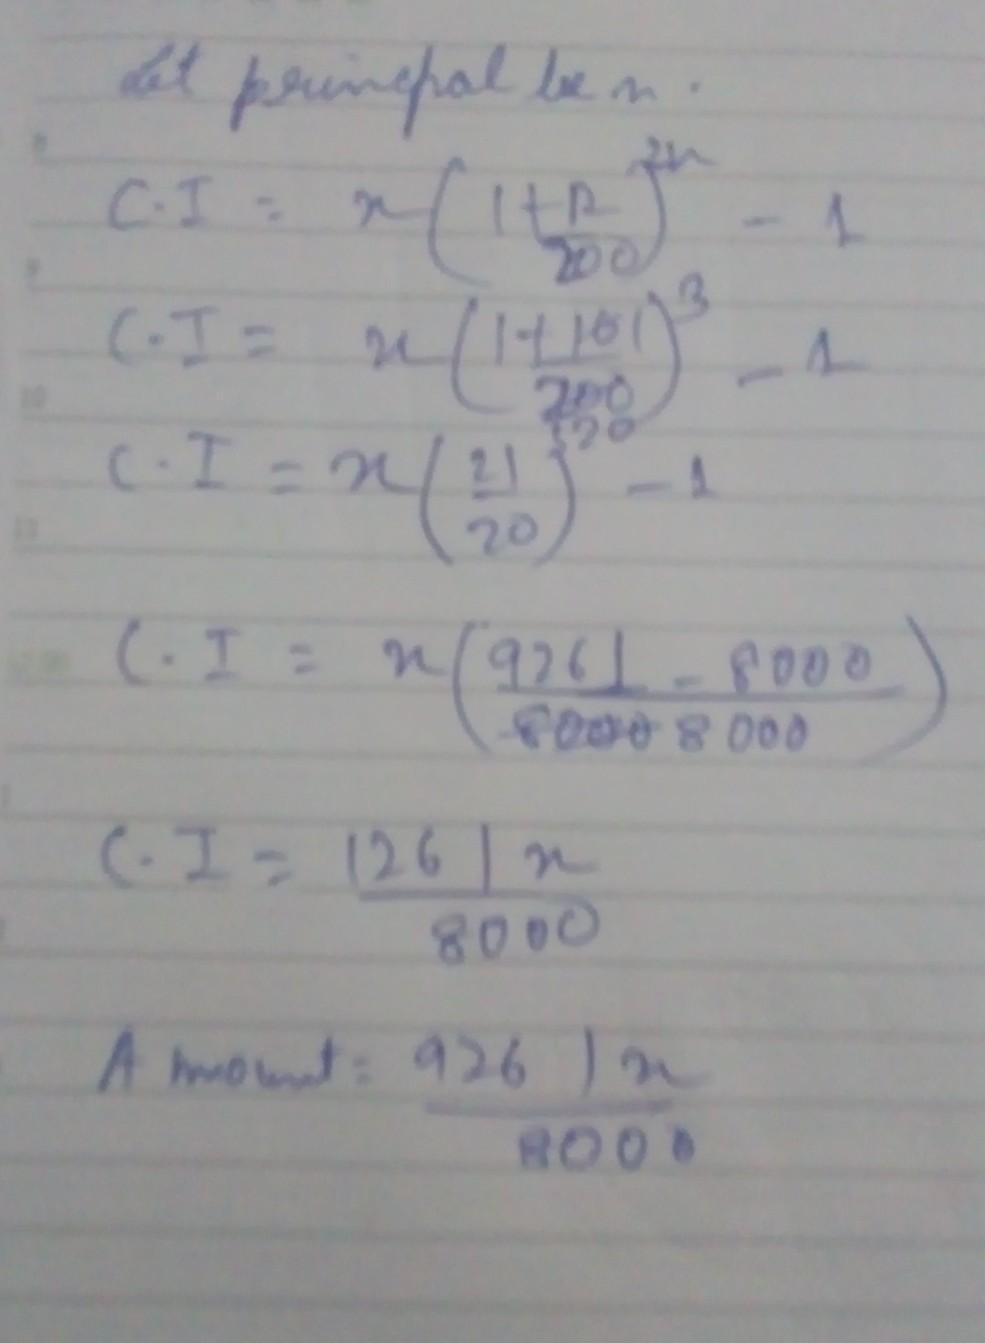 Let principal be x.
C.I = x(1+R/200)^2n - 1
C.I = x(1+10/200)^3 - 1
C.I = x(21/20)^3 - 1
C.I = x(9261 - 8000/8000)
C.I = 1261x/8000
Amount = 9261x/8000